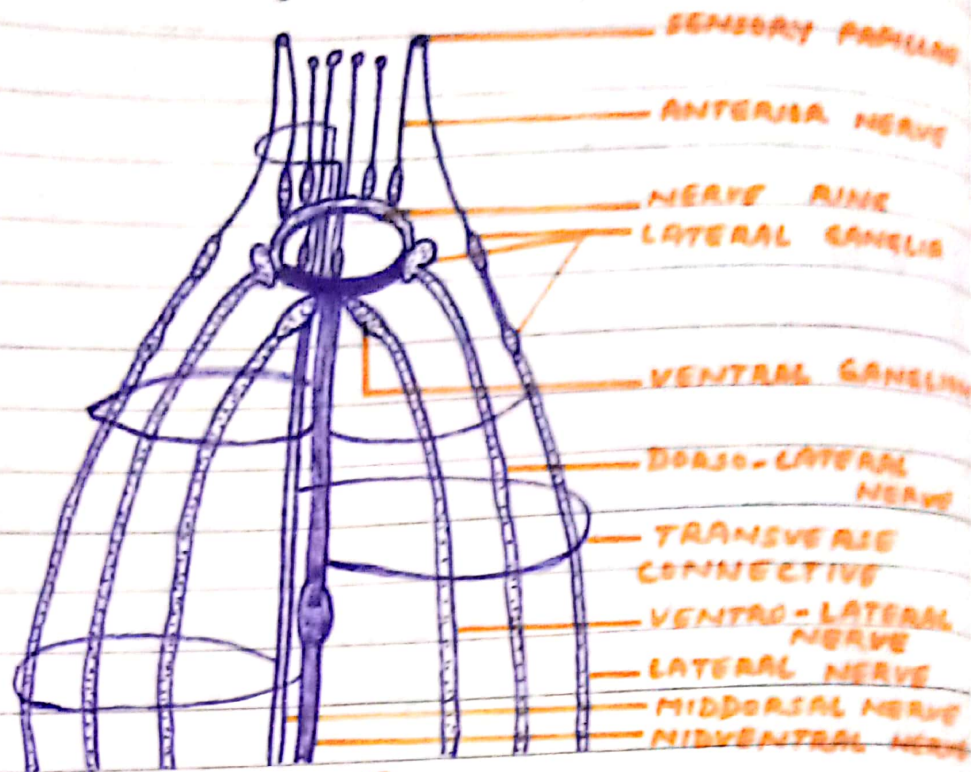 SENSORY PAPILLAE
ANTERIOR NERVE
NERVE RING
LATERAL GANGLIA
VENTRAL GANGLION
DORSO-LATERAL
NERVE
TRANSVERSE
CONNECTIVE
VENTRO-LATERAL
NERVE
LATERAL NERVE
MIDDORSAL NERVE
MIDVENTRAL NERVE